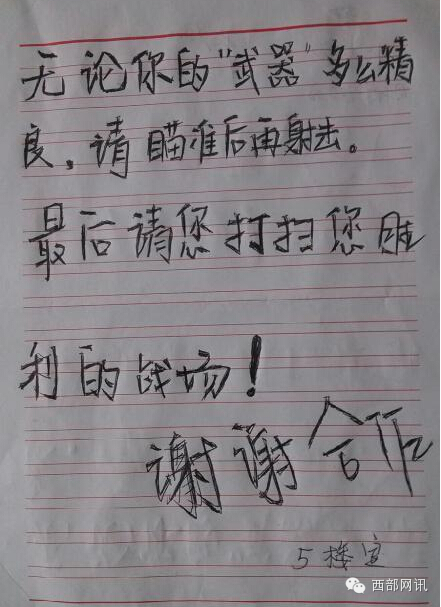 无论你的"武器"多么精
良，请瞄准后再射击。
最后请您打扫您胜
利的战场！
谢谢合作
5楼宣
西部网讯